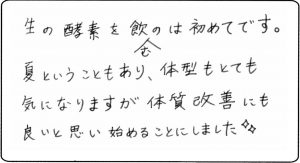 生の酵素を飲むのは初めてです。
夏ということもあり、体型もとても
気になりますが体質改善にも
良いと思い始めることにしました